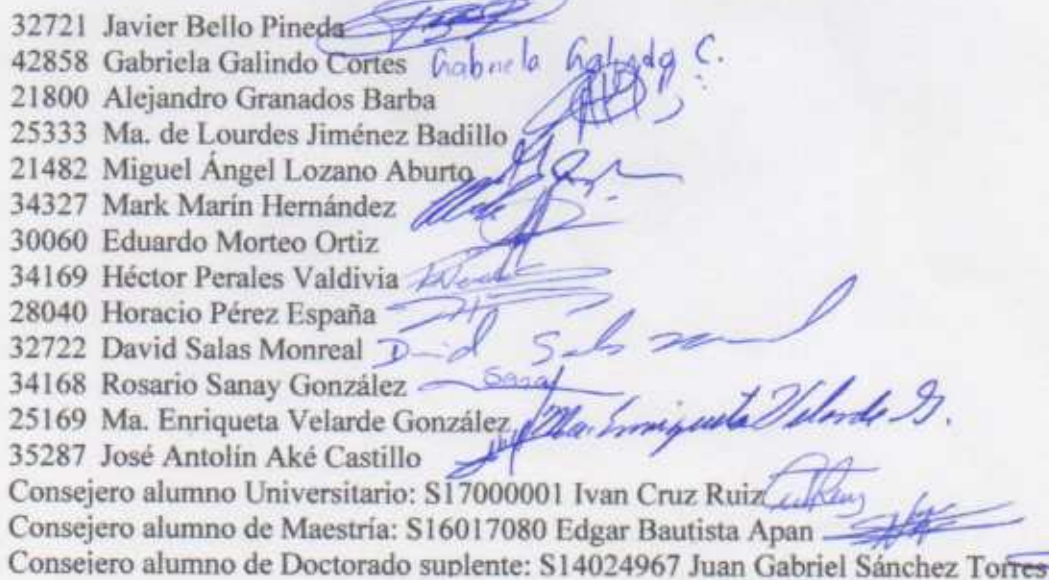 32721 Javier Bello Pineda
42858 Gabriela Galindo Cortes Gabriela Galindo C.
21800 Alejandro Granados Barba
25333 Ma. de Lourdes Jiménez Badillo
21482 Miguel Ángel Lozano Aburto
34327 Mark Marín Hernández
30060 Eduardo Morteo Ortiz
34169 Héctor Perales Valdivia
28040 Horacio Pérez España
32722 David Salas Monreal David Salas
34168 Rosario Sanay González Sanay
25169 Ma. Enriqueta Velarde González Ma. Enriqueta Velarde G.
35287 José Antolín Aké Castillo
Consejero alumno Universitario: S17000001 Ivan Cruz Ruiz
Consejero alumno de Maestría: S16017080 Edgar Bautista Apan
Consejero alumno de Doctorado suplente: S14024967 Juan Gabriel Sánchez Torres